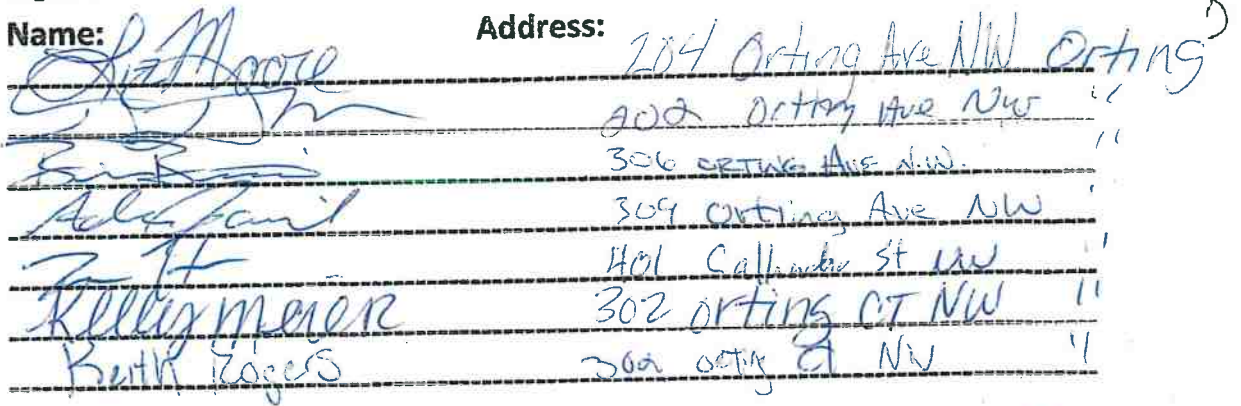 Name: Address:
Liz Moore 204 Orting Ave NW Orting
202 Orting Ave NW "
306 ORTING AVE N.W. "
309 Orting Ave NW "
401 St NW "
Kelly Meier 302 Orting CT NW "
Keith Rogers 302 Orting Ct NW "